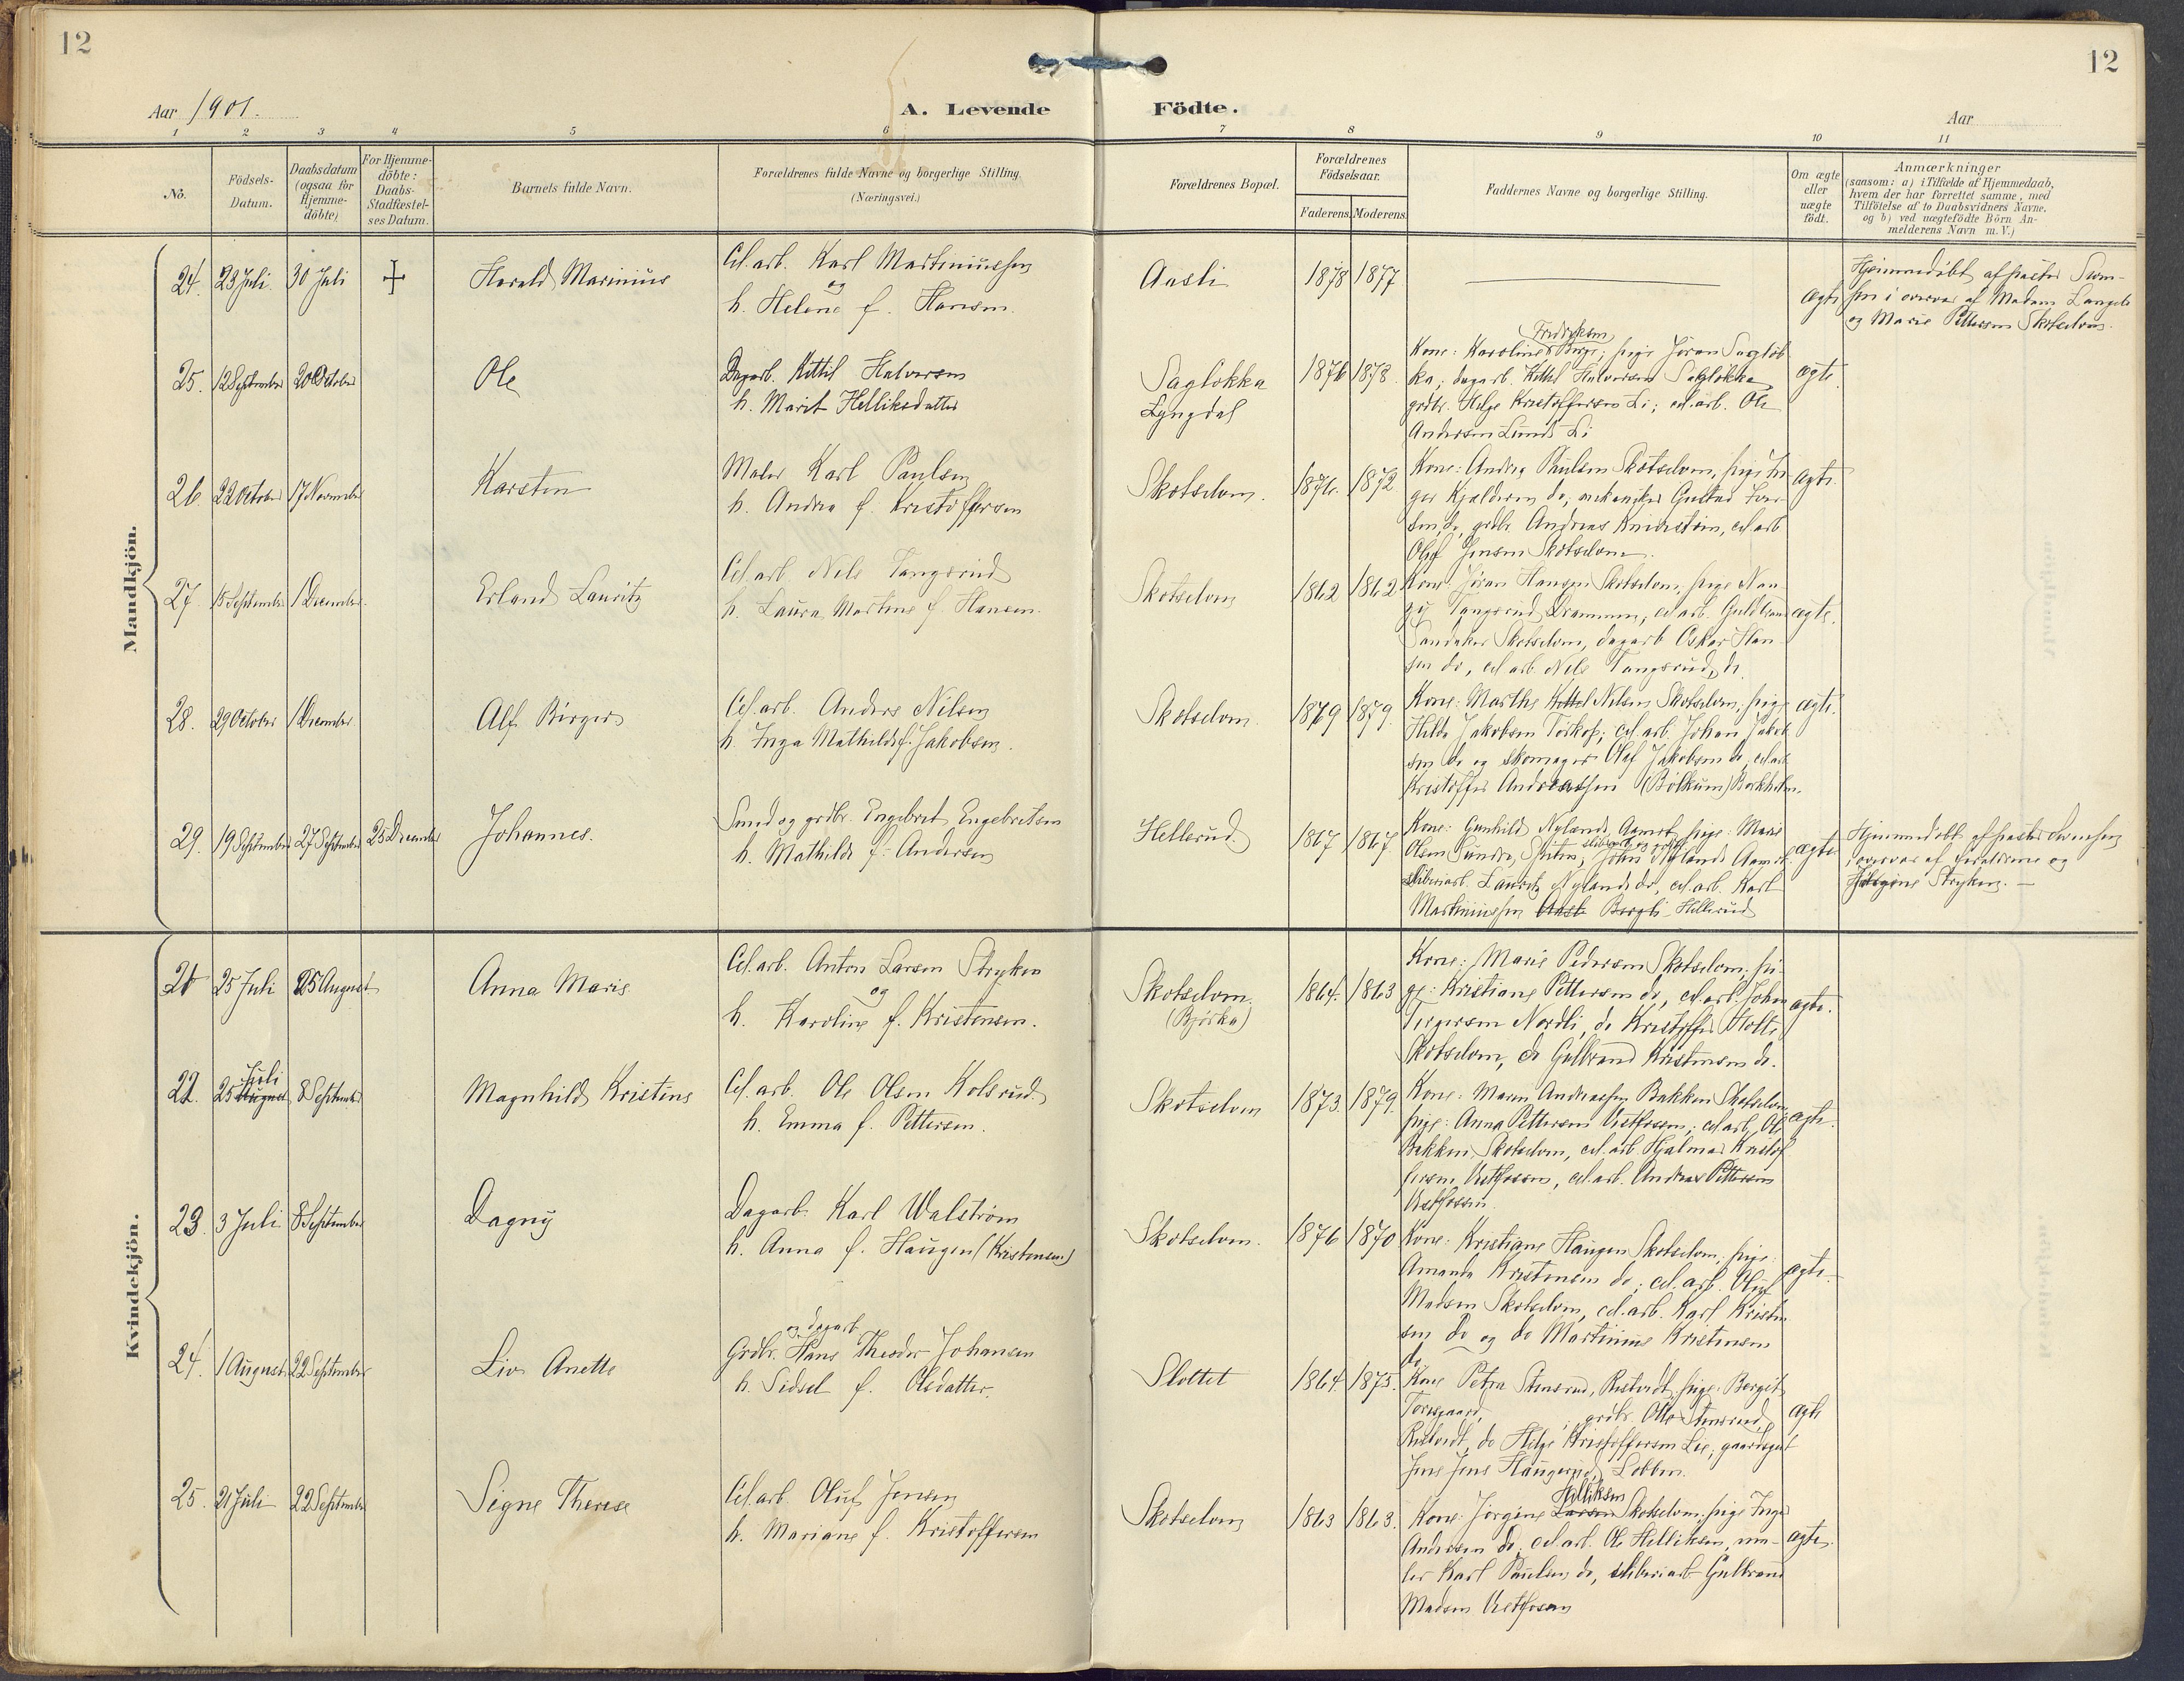 12
12
Aar 1901.
A. Levende Födte.
Aar
1 2 3 4 5 6 7 8 9 10 11
No.
Födsels-Datum.
Daabsdatum (ogsaa for Hjemme-döbte)
For Hjemme-döbte: Daabs-Stadfæstel-ses Datum.
Barnets fulde Navn.
Forældrenes fulde Navne og borgerlige Stilling.
(Næringsvei.)
Forældrenes Bopæl.
Forældrenes Födselsaar.
Faderens. Moderens.
Faddernes Navne og borgerlige Stilling.
Om ægte eller uægte födt.
Anmærkninger
(saasom: a) i Tilfælde af Hjemmedaab,
hvem der har forrettet samme, med
Tilföielse af to Daabsvidners Navne,
og b) ved uægtefödte Börn An-
melderens Navn m. V.)
Mandkjön.
24. 23 Juli 30 Juli + Harald Marinius
Cel.arb. Karl Martiniussen
og
h. Helene f. Hansen.
Aasli 1878 1877 ægte
Hjemmedöbt af pastor Sven-
sen i overvær af Madam Langeli
og Marie Pettersen Skotselven.
25. 12 September 20 October Ole
Dagarb. Kittil Halvorsen
h. Marit Helliksdatter
Saglökka
Lyngdal
1876 1878.
Fredriksen
Kone: Karoline Berge; pige Jöran Saglök-
ka; dagarb. Kittil Halvorsen Saglökka
grdbr. Helge Kristoffersen Li; cel.arb. Ole
Andersen Lunde Li
ægte.
26. 22 October 17 November Karsten
Maler Karl Paulsen
h. Andrea f. Kristoffersen
Skotselven. 1876. 1872
Kone: Andrea Paulsen Skotselven, pige In-
ger Kjelderen do; mekaniker Gustav Iver-
sen do, grdbr. Andreas Knivestöen, cel.arb
Oluf Jensen Skotselven.
ægte.
27. 15 September 1 December. Erland Lauritz
Cel.arb. Nils Tangsrud
h. Laura Martine f. Hansen.
Skotselven 1862 1862
Kone: Jöran Hansen Skotselven, pige Nan-
zy Tangsrud Drammen, cel.arb. Guldbrand
Sandaker Skotselven, dagarb Oskar Han-
sen do, cel.arb. Nils Tangsrud, do.
ægte.
28. 29 October 1 December Alf Birger
Cel.arb. Anders Nilsen
h. Inga Mathilde f. Jakobsen.
Skotselven. 1879 1879.
Kone: Marthe Nilsen Skotselven, pige
Hilda Jakobsen Torkop; cel.arb. Johan Jakob-
sen do og skomager Olaf Jakobsen do, cel.arb
Kristoffer Andreassen (Bölkum) Borkholm.
ægte.
29. 19 September 27 September 25 December Johannes.
Smed og grdbr. Engebret Engebretsen
h. Mathilde f. Andersen
Hellerud. 1867 1867.
Kone: Gunhild Nyland Aamot, pige: Marie
Olsen Sundre, Skiten, John Nyland Aamot
sliberiarb. Lauritz Nyland do, cel.arb. Karl
Martiniussen Aasli Bergli Hellerud
ægte
Hjemmedöbt af pastor Svensen
i overvær af forældrene og
Jörgine Stryken. —
Kvindekjön.
21 25 Juli 25 August Anna Marie
Cel.arb. Anton Larsen Stryken
og
h. Karoline f. Kristensen.
Skotselven.
(Björka)
1864. 1863
Kone: Marie Pedersen Skotselven, pi-
ge: Kristiane Pettersen do, cel.arb. Johan
Torgersen Nordli, do Kristoffer Holte
Skotselven, do Gulbrand Kristensen do.
ægte.
22. 25 Juli August 8 September Magnhild Kristine
Cel.arb. Ole Olsen Kolsrud.
h. Emma f. Pettersen.
Skotselven 1873. 1879.
Kone: Maren Andreassen Bakken Skotselven,
pige: Anna Pettersen Vestfossen; cel.arb. Ole
Bakken Skotselven, cel.arb. Hjalmar Kristof-
fersen Vestfossen, cel.arb. Andreas Pettersen
Vestfossen
ægte.
23. 3 Juli 8 September Dagny
Dagarb. Karl Walström
h. Anna f. Haugen (Kristensen)
Skotselven. 1876 1870.
Kone: Kristiane Haugen Skotselven, pige
Amanda Kristensen do; cel.arb. Oluf
Madsen Skotselven, cel.arb. Karl Kristen-
sen do og do Martinius Kristensen
do
ægte.
24. 1 August 22 September Liv Anette
og dagarb
Grdbr. Hans Theodor Johansen
h. Sidsel f. Olsdatter.
Slottet 1864. 1875.
Kone Petra Stensrud, Rustvedt, pige: Bergit
Toresgaard, grdbr. Otto Stensrud,
Rustvedt, do Helge Kristoffersen Lie; gaardsgut
Jens Jens Haugerud, Lobben.
ægte
25. 21 Juli 22 September Signe Therese
Cel.arb. Oluf Jensen
h. Mariane f. Kristoffersen
Skotselven 1863 1863.
Helliksen
Kone: Jörgine Larsen Skotselven, pige Inga
Andersen do, cel.arb. Ole Helliksen, ma-
ler Karl Paulsen do, sliberiarb Gulbrand
Madsen Vestfossen
ægte.